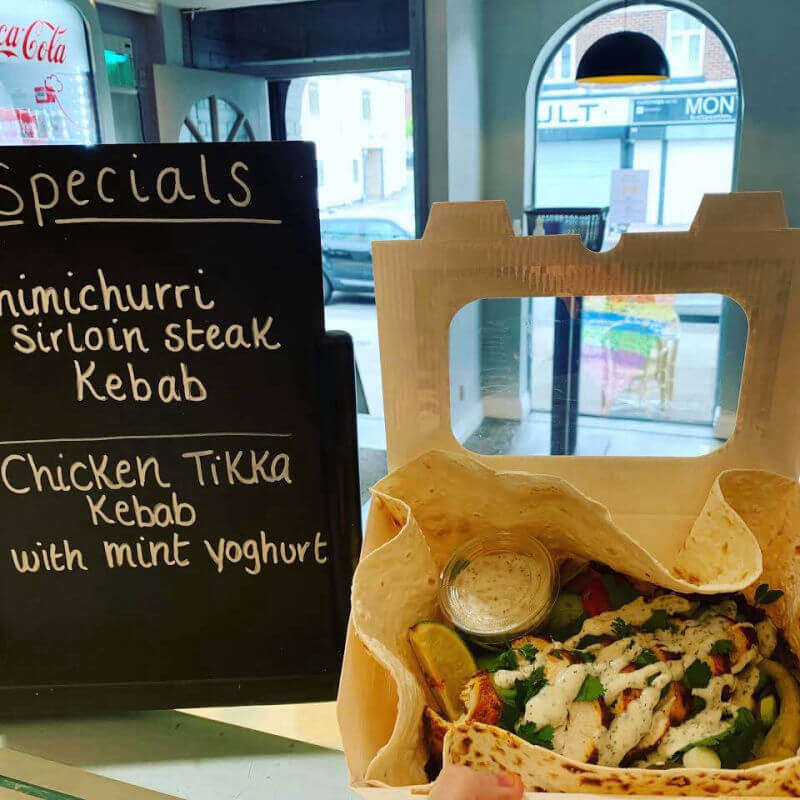 Coca-Cola
ULT.
MON
Specials
himichurri
Sirloin steak
Kebab
Chicken Tikka
Kebab
with mint yoghurt